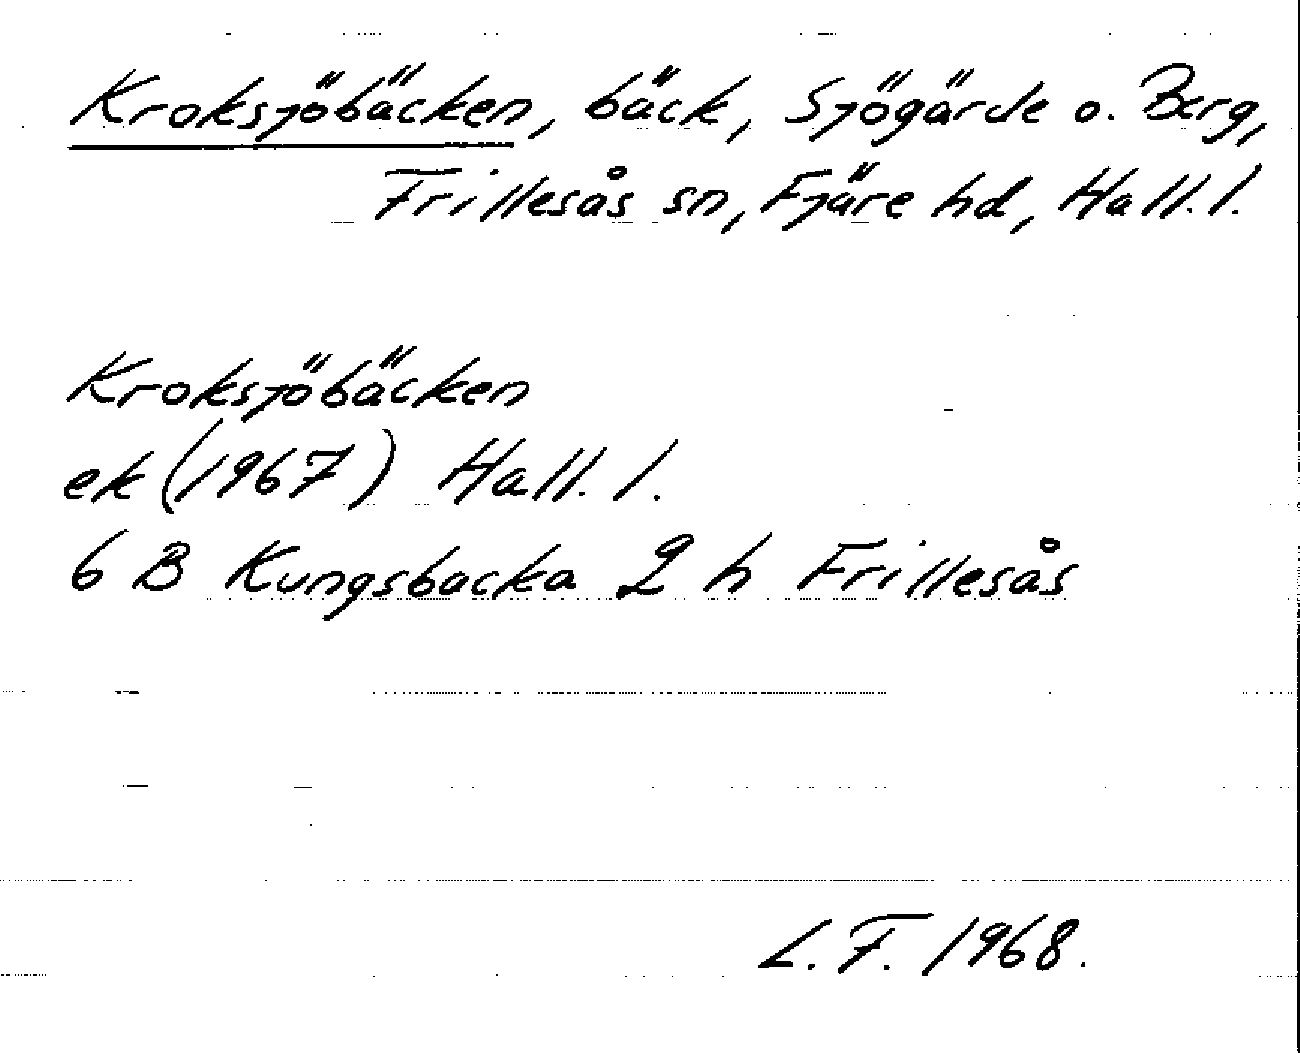 Kroksjöbäcken, bäck, Sjögärde o. Berg,
Frillesås sn, Fjäre hd, Hall. l.
Kroksjöbäcken
ek (1967) Hall. l.
6 B Kungsbacka 2 h Frillesås
L. F. 1968.